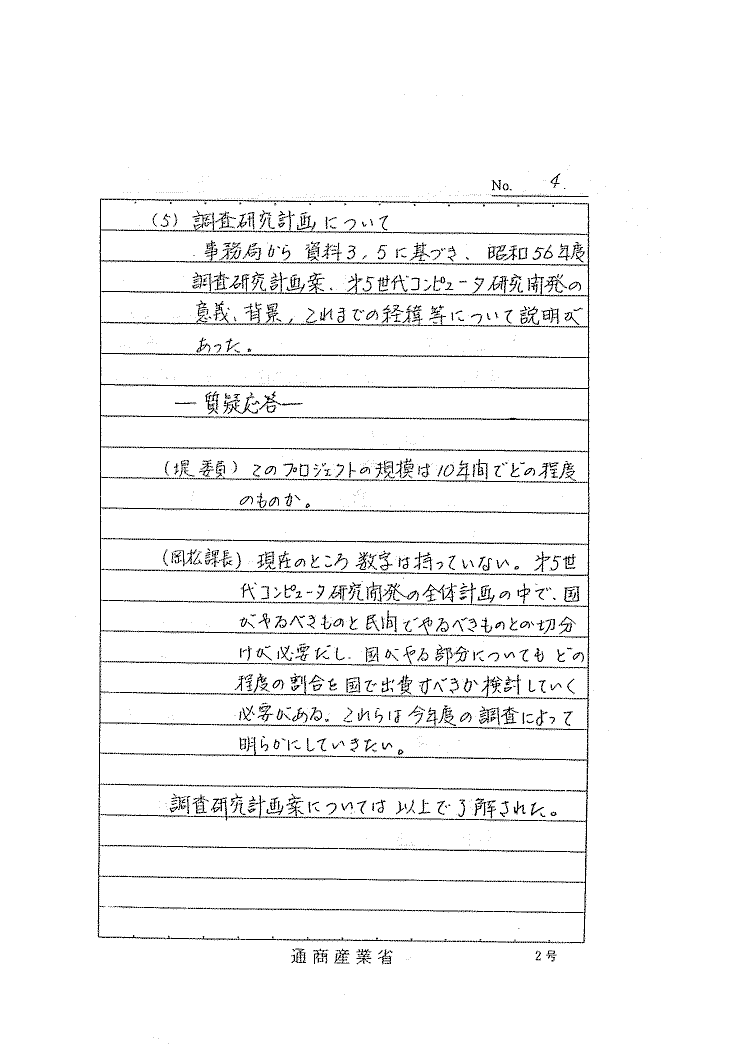 No. 4.
(5) 調査研究計画について
事務局から資料3,5に基づき、昭和56年度
調査研究計画案、第5世代コンピュータ研究開発の
意義、背景、これまでの経緯等について説明が
あった。
―質疑応答―
(堤委員) このプロジェクトの規模は10年間でどの程度
のものか。
(岡松課長) 現在のところ数字は持っていない。第5世
代コンピュータ研究開発の全体計画の中で、国
がやるべきものと民間でやるべきものとの切分
けが必要だし、国がやる部分についてもどの
程度の割合を国で出費すべきか検討していく
必要がある。これらは今年度の調査によって
明らかにしていきたい。
調査研究計画案については以上で了解された。
通商産業省
2号